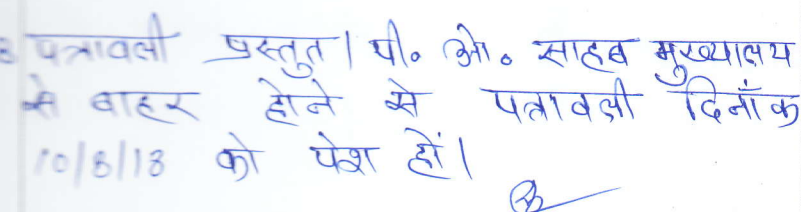 पत्रावली प्रस्तुत। पी॰ ओ॰ साहब मुख्यालय
से बाहर होने से पत्रावली दिनाँक
10/8/18 को पेश हों।